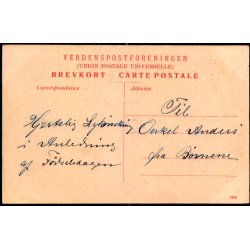 VERDENSPOSTFORENINGEN
(UNION POSTALE UNIVERSELLE)
BREVKORT - CARTE POSTALE
Correspondance
Adresse
Hjertelig Lykönskning
i Anledning
af Födselsdagen
Til
Onkel Anders
fra Börnene